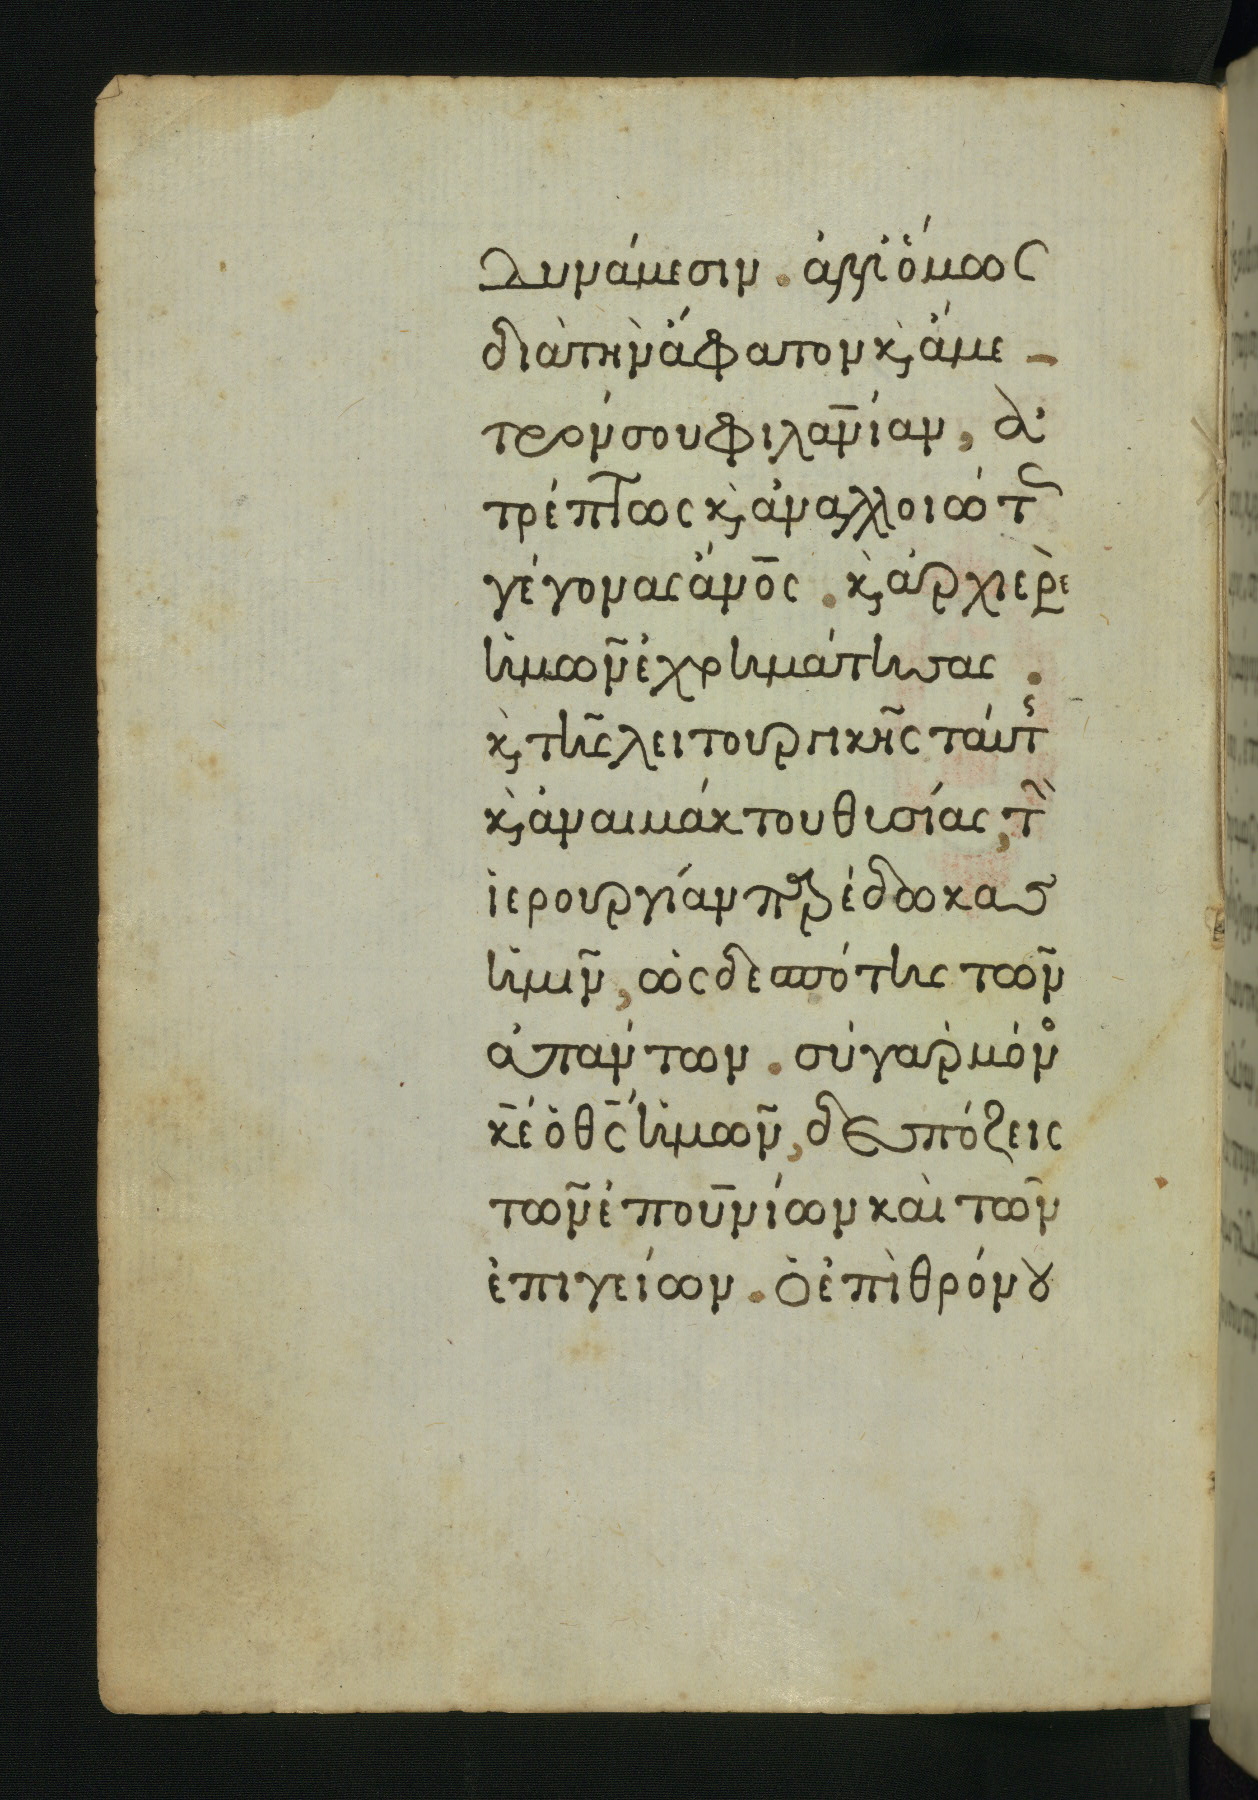 δυνάμεσιν. ἀλλ' ὅμως
διὰ τὴν ἄφατον κ(αὶ) ἄμε-
τρόν σου φιλαν̅ίαν, ἀ
τρέπτως κ(αὶ) ἀναλλοιώτ
γέγονας ἄνο̅ς. κ(αὶ) ἀρχιερε
ἡμῶν ἐχρημάτησας.
κ(αὶ) τῆς λειτουργικῆς ταύτ
κ(αὶ) ἀναιμάκτου θυσίας, τ
ἱερουργίαν πρέδωκας
ἡμῖν, ὡς δεσπότης τῶν
ἁπάντων. σὺ γὰρ μόν
κ̅ε ὁ θ̅ς ἡμῶν, δεσπόζεις
τῶν ἐπουν̅ίων καὶ τῶν
ἐπιγείων. ὁ ἐπὶ θρόνου